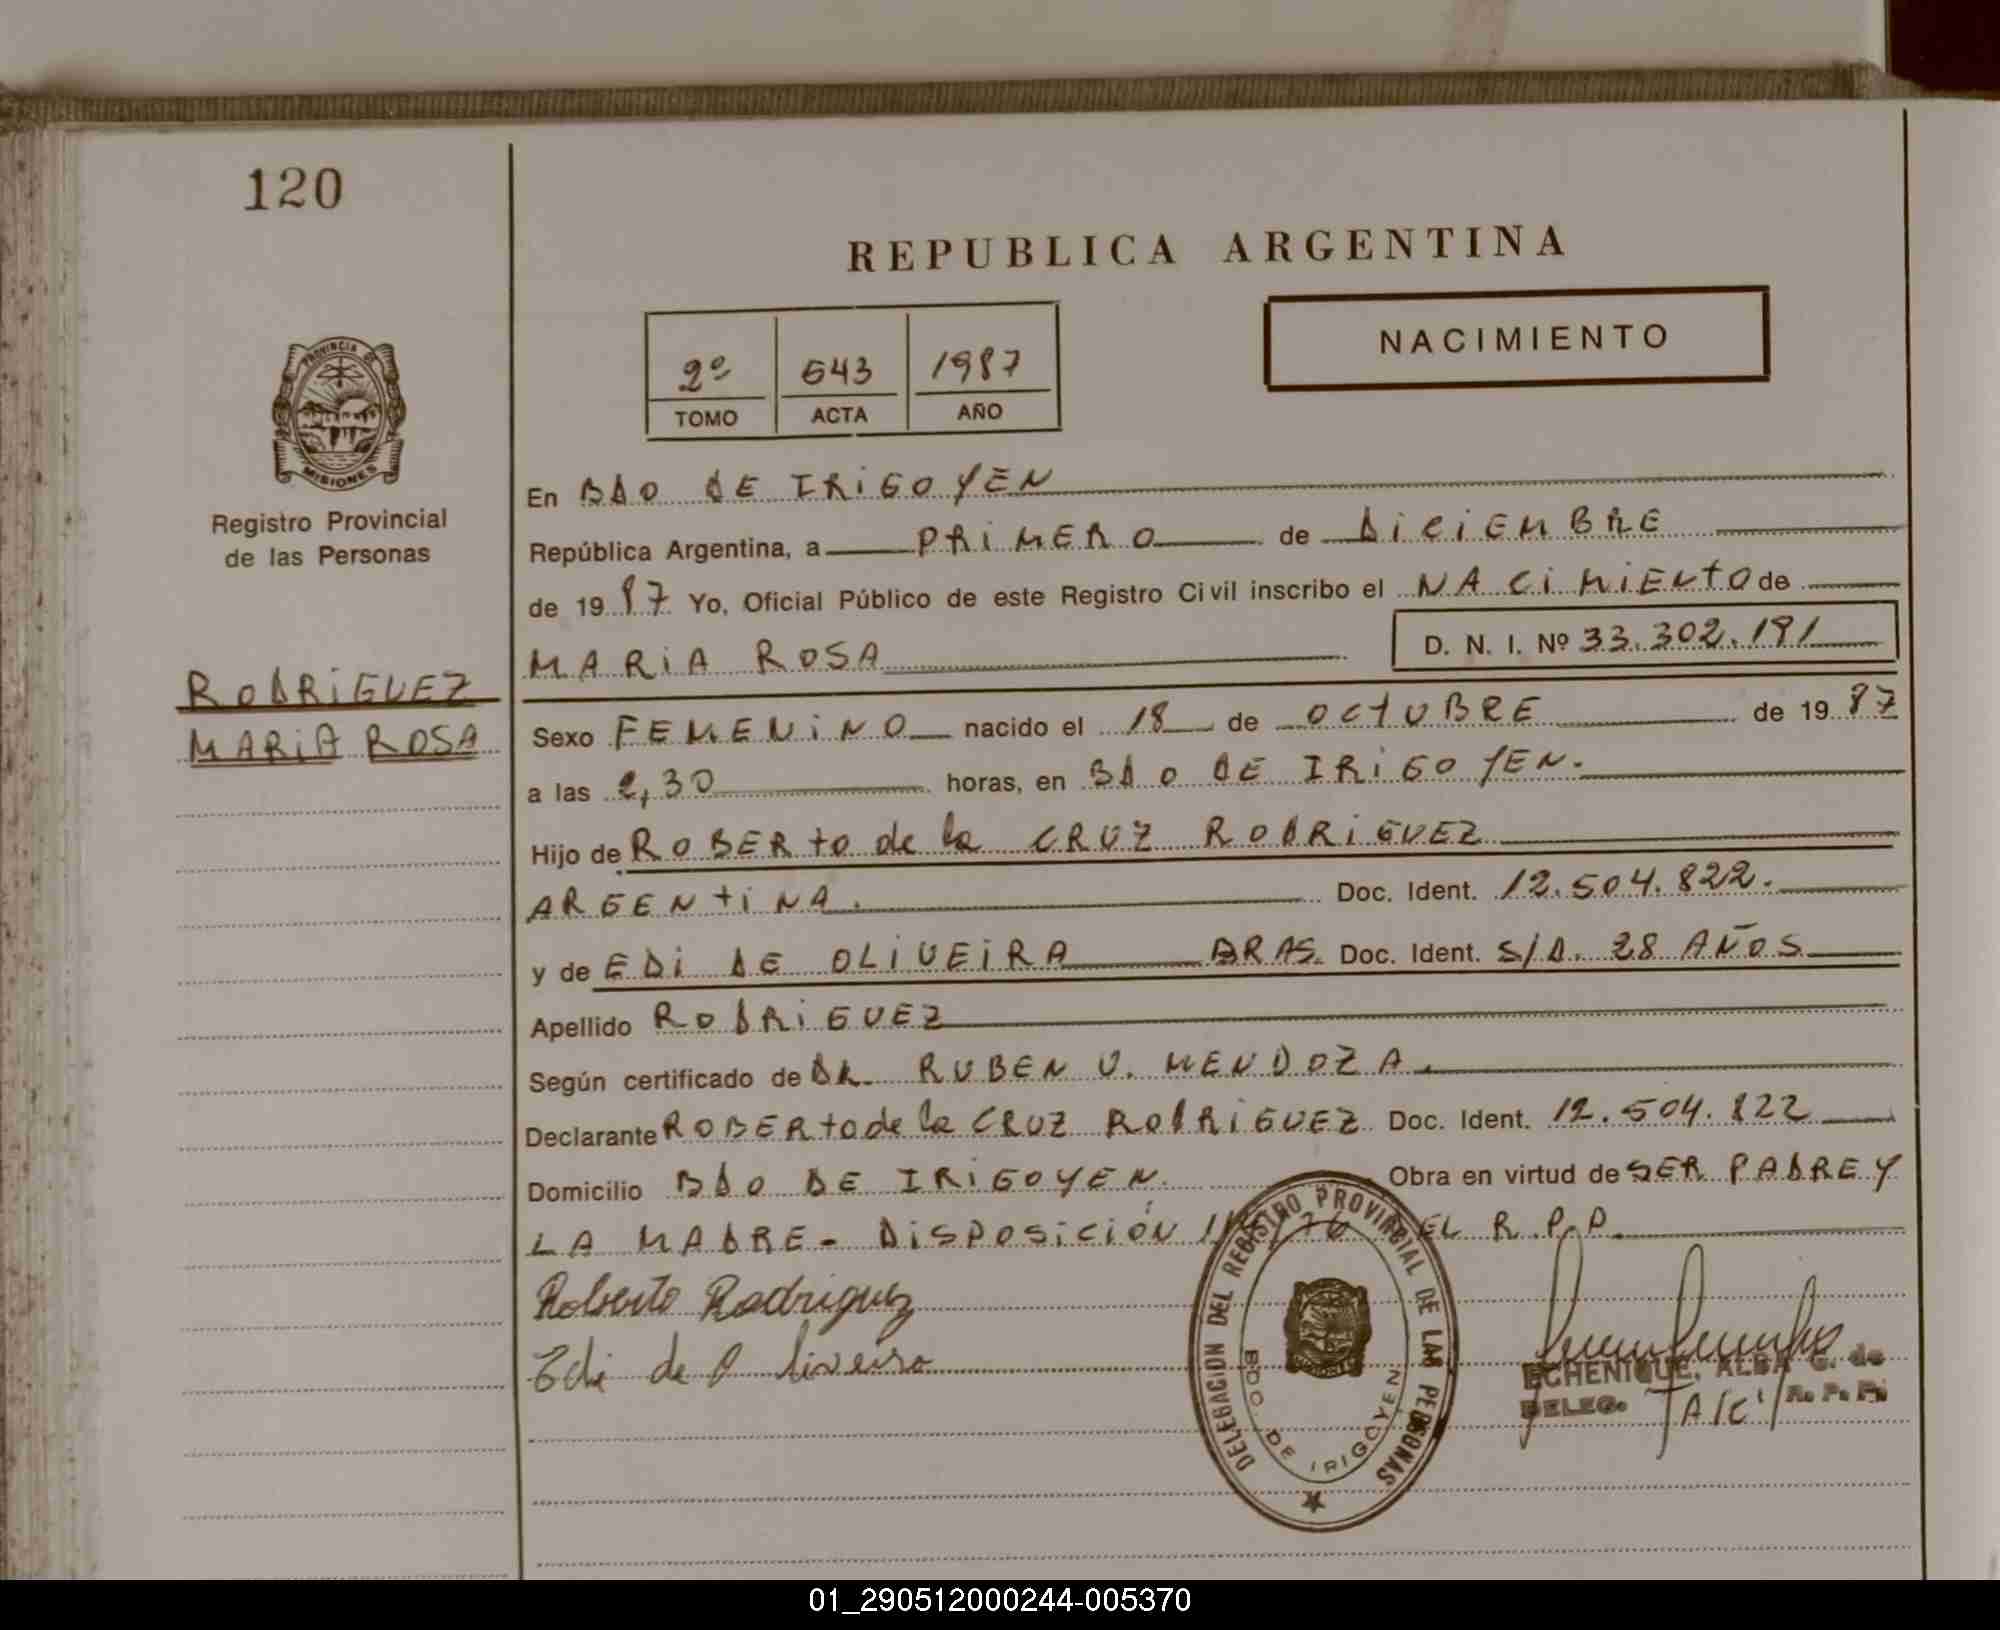 120
REPUBLICA ARGENTINA
NACIMIENTO
2º 643 1987
TOMO ACTA AÑO
PROVINCIA DE
MISIONES
Registro Provincial
de las Personas
RODRIGUEZ
MARIA ROSA
En BDO DE IRIGOYEN
República Argentina, a PRIMERO de DICIEMBRE
de 1987 Yo, Oficial Público de este Registro Civil inscribo el NACIMIENTO de
MARIA ROSA D. N. I. Nº 33.302.191
Sexo FEMENINO nacido el 18 de OCTUBRE de 1987
a las 2,30 horas, en BDO DE IRIGOYEN.
Hijo de ROBERTO de la CRUZ RODRIGUEZ
ARGENTINA. Doc. Ident. 12.504.822.
y de EDI DE OLIVEIRA BRAS. Doc. Ident. S/D. 28 AÑOS
Apellido RODRIGUEZ
Según certificado de DR. RUBEN U. MENDOZA.
Declarante ROBERTO de la CRUZ RODRIGUEZ Doc. Ident. 12.504.822
Domicilio BDO DE IRIGOYEN. Obra en virtud de SER PADRE Y
LA MADRE - DISPOSICIÓN /76 EL R.P.P.
Roberto Rodriguez
Edi de Oliveira
DELEGACION DEL REGISTRO PROVINCIAL DE LAS PERSONAS
BDO. DE IRIGOYEN
ECHENIQUE, ALBA C. de
DELEG. R. P. P.
01_290512000244-005370